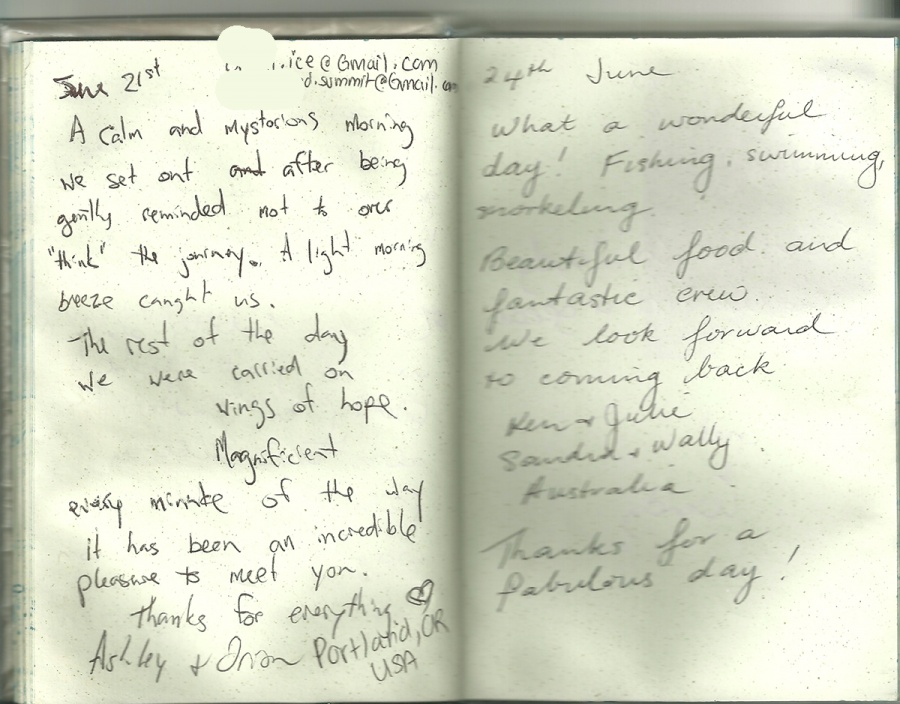 June 21st
ice@Gmail.com
d.summit@Gmail.com
A Calm and Mysterious Morning
we set out after being
gently reminded not to over
"think" the journey. A light morning
breeze caught us.
The rest of the day
we were carried on
wings of hope.
Magnificient
every minute of the way
it has been an incredible
pleasure to meet you.
thanks for everything
Ashley + Portland, OR
USA
24th June
What a wonderful
day! Fishing, swimming,
snorkeling.
Beautiful food and
fantastic crew.
We look forward
to coming back
Ken + Julie
Sandra + Wally
Australia
Thanks for a
fabulous day!